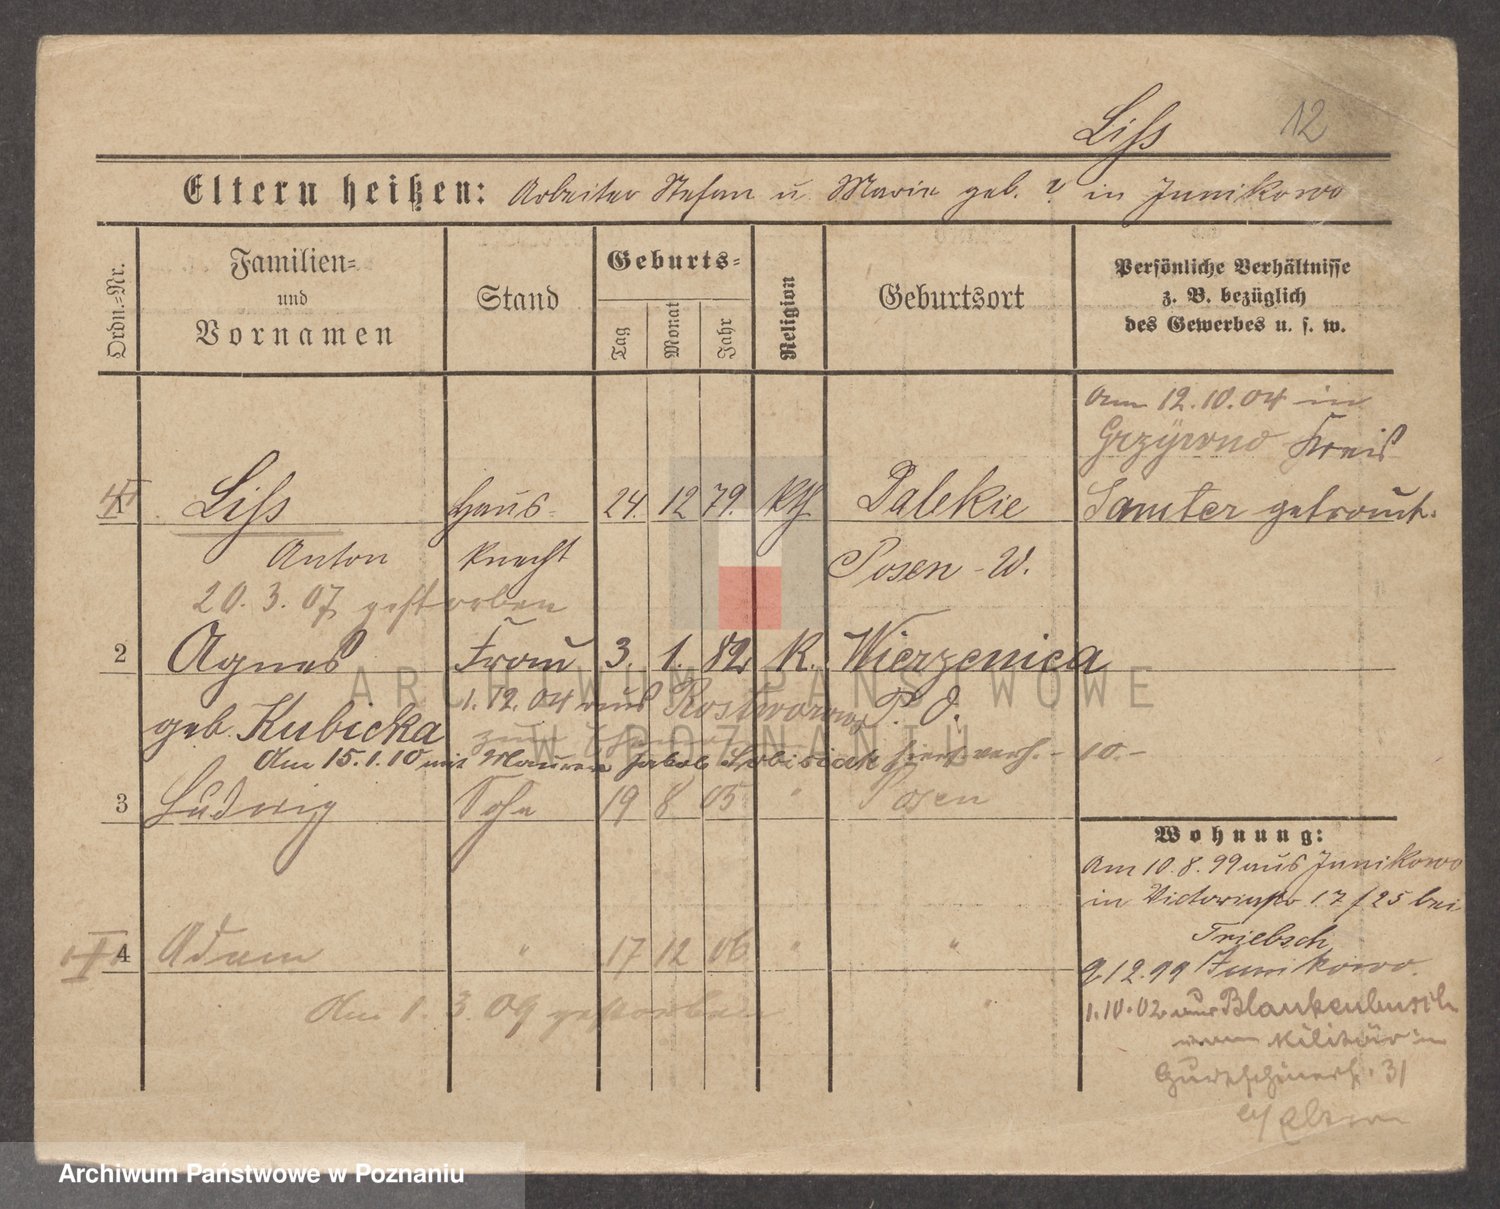 Liss 12
Eltern heißen: Arbeiter Stefan u Marie geb. ? in Junikowo
Ordn.=Nr.
Familien=
und
Vornamen
Stand
Geburts=
Tag
Monat
Jahr
Religion
Geburtsort
Persönliche Verhältnisse
z. B. bezüglich
des Gewerbes u. s. w.
am 12.10.04 in
Grzywno Kreis
Samter getraut.
1 Liss Haus- 24. 12 79. kth Dalekie
Anton knecht Posen-W.
20.3.07 gestorben
2 Agnes Frau 3. 1. 82. k. Wierzenica
geb. Kubicka 1.12.04 aus Rostworowo P. O.
Am 15.1.10 mit Maurer Jakob
3 Ludwig Sohn 19 8 05 " Posen
4 Adam " 17 12 06 " "
Am 1.3.09 gestorben
Wohnung:
Am 10.8.99 aus Junikowo
in Victoriastr 17/25 bei
Triebsch
2.12.99 Junikowo.
1.10.02 aus
vom Militär in
31
ARCHIWUM PAŃSTWOWE
W POZNANIU
Archiwum Państwowe w Poznaniu